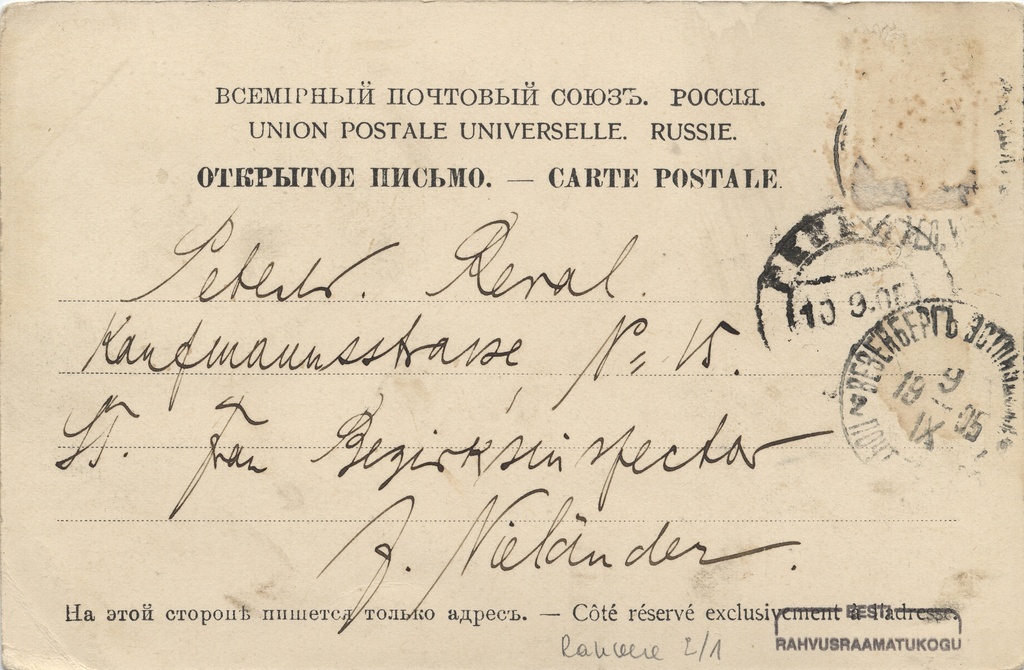 ВСЕМІРНЫЙ ПОЧТОВЫЙ СОЮЗЪ. РОССІЯ.
UNION POSTALE UNIVERSELLE. RUSSIE.
ОТКРЫТОЕ ПИСЬМО. — CARTE POSTALE.
Reval.
10 9.05
Kaufmannsstrasse № 15.
ВЕЗЕНБЕРГЪ ЭСТЛЯ
19 9 05
IX
Frau Bezirksinspector
J. Nieländer.
На этой сторонѣ пишется только адресъ. — Côté réservé exclusivement à l'adresse.
EESTI
RAHVUSRAAMATUKOGU
Rakvere 2/1